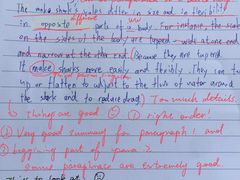 The mako shark's scales differ in size and in flexibility
different
in opposite parts of a body. For instance, the scales
on the sides of the body are tapered - wide at one end
and narrow at the other end (Because they are tapered
It makes) sharks more easily and flexibly. They can turn
up or flatten to adjust to the flow of water around
the shark and to reduce drag) Too much details.
Things are good ☺ ① right order!
① Very good summary for paragraph 1 and
② beginning part of para 2.
Some paraphrases are extremely good.
Things to look at